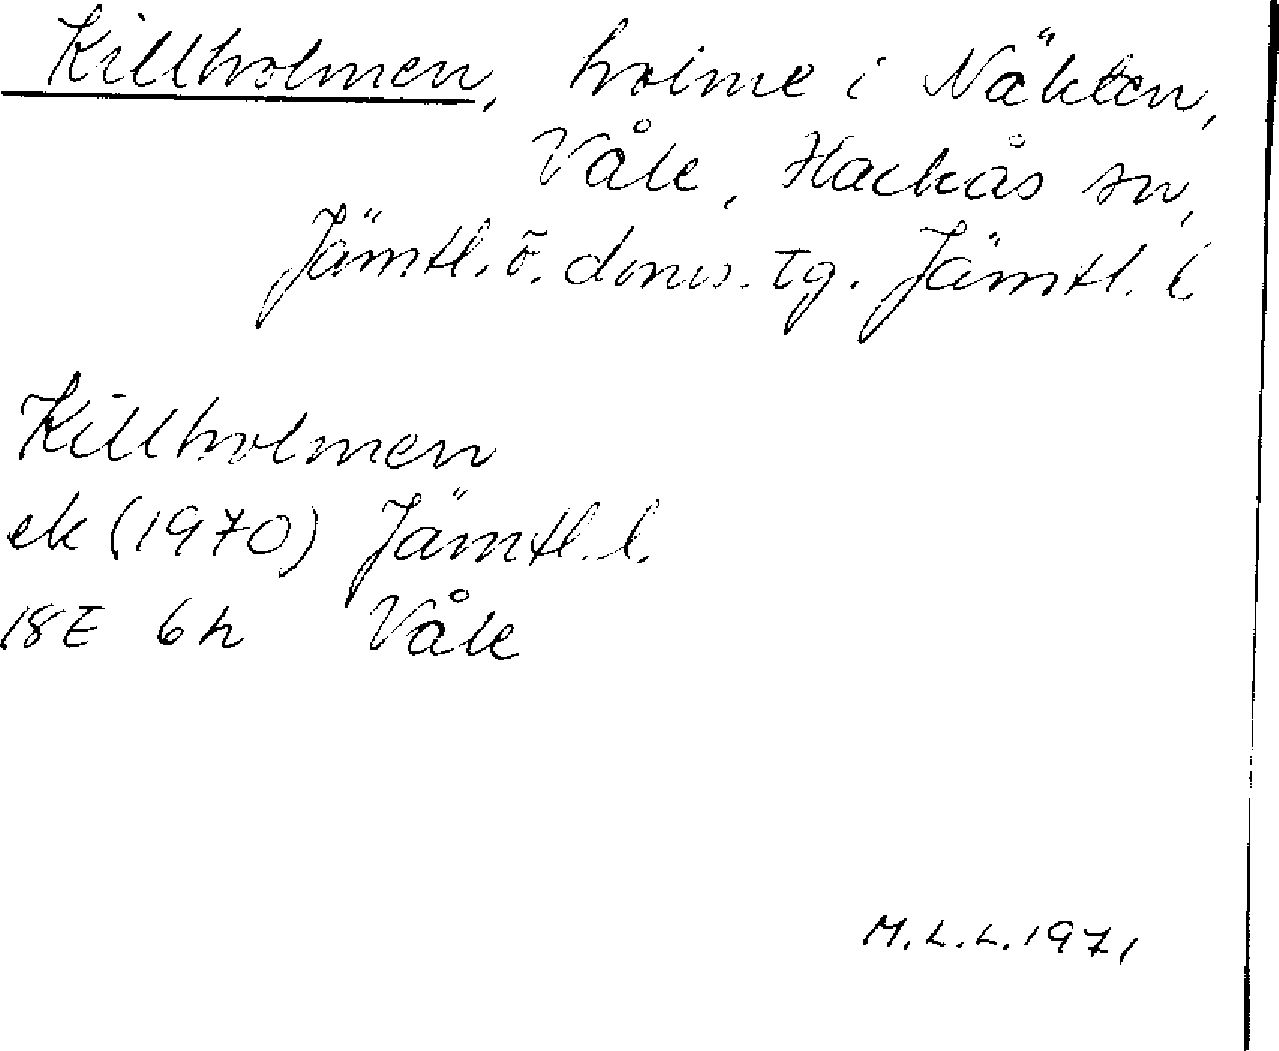 Killholmen, holme i Näkten,
Våle, Hackås sn,
Jämtl. ö. doms. tg. Jämtl. l.
Killholmen
ek (1970) Jämtl. l.
18E 6h Våle
M.L.L. 1971